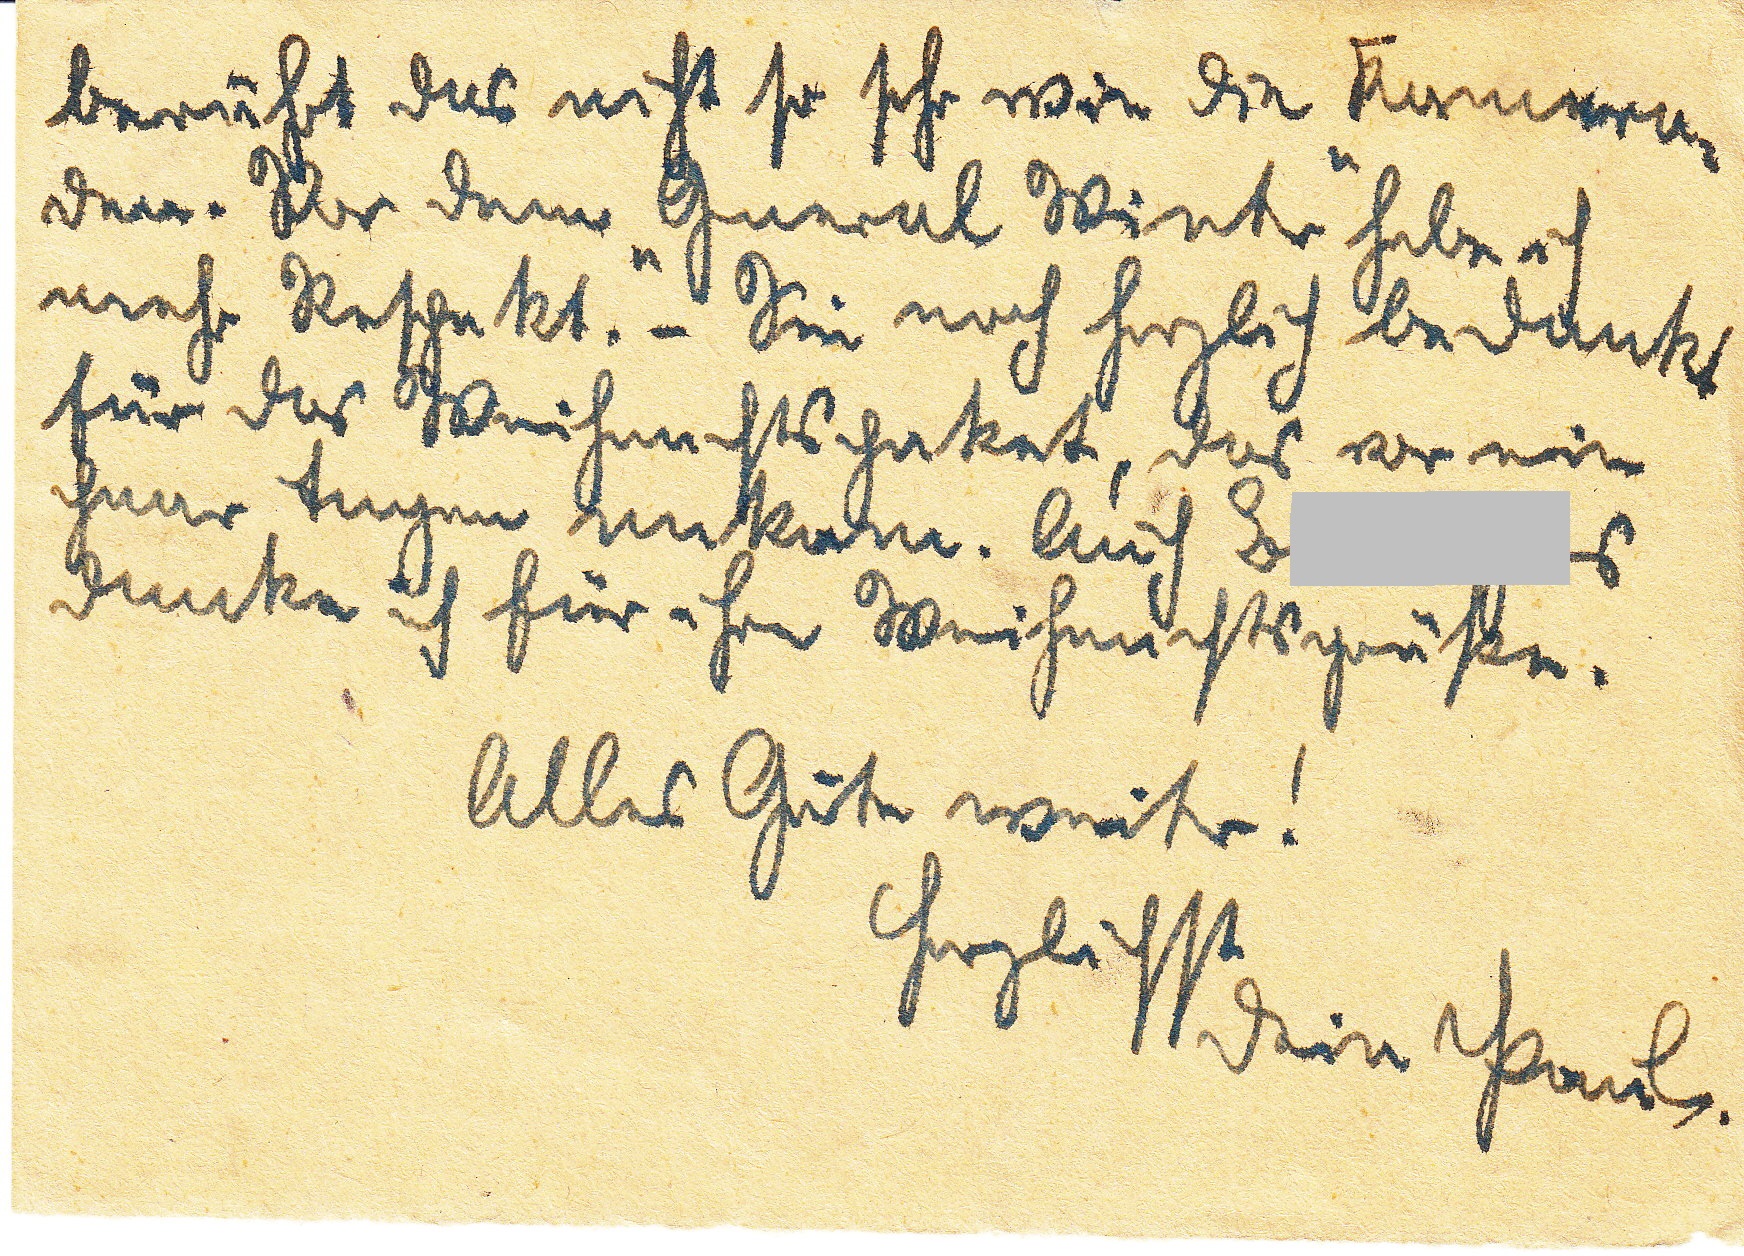 berührt das nicht so sehr wie die Kamera-
den. Vor dem "General Winter" habe ich
mehr Respekt. - Sei noch herzlich bedankt
für das Weihnachtspaket, das vor ein
paar Tagen ankam. Auch
danke ich für ihre Weihnachtsgrüße.
Alles Gute weiter!
Herzlichst
Dein Paul.